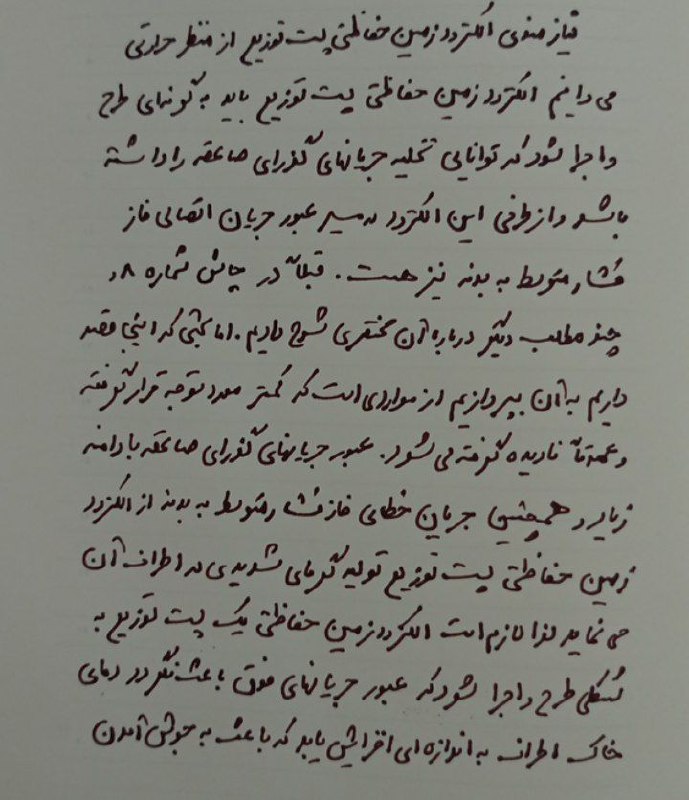 نیازمندی الکترود زمین حفاظتی پست توزیع از منظر حرارتی
می دانیم الکترود زمین حفاظتی پست توزیع باید به گونه‌ای طرح
و اجرا شود که توانایی تخلیه جریانهای گذرای صاعقه را داشته
باشد و از طرفی این الکترود مسیر عبور جریان اتصالی فاز
فشار متوسط به بدنه نیز هست. قبلاً در چالش شماره ۸ و
چند مطلب دیگر درباره آن مختصری شرح دادیم. اما بحثی که اینجا قصد
داریم به آن بپردازیم از مواردی است که کمتر مورد توجه قرار گرفته
و عمدتاً نادیده گرفته می شود. عبور جریانهای گذرای صاعقه با دامنه
زیاد و همچنین جریان خطای فاز فشار متوسط به بدنه از الکترود
زمین حفاظتی پست توزیع تولید گرمای شدیدی در اطراف آن
می نماید لذا لازم است الکترود زمین حفاظتی یک پست توزیع به
شکلی طرح و اجرا شود که عبور جریانهای فوق باعث نگردد دمای
خاک اطراف به اندازه ای افزایش یابد که باعث به جوش آمدن